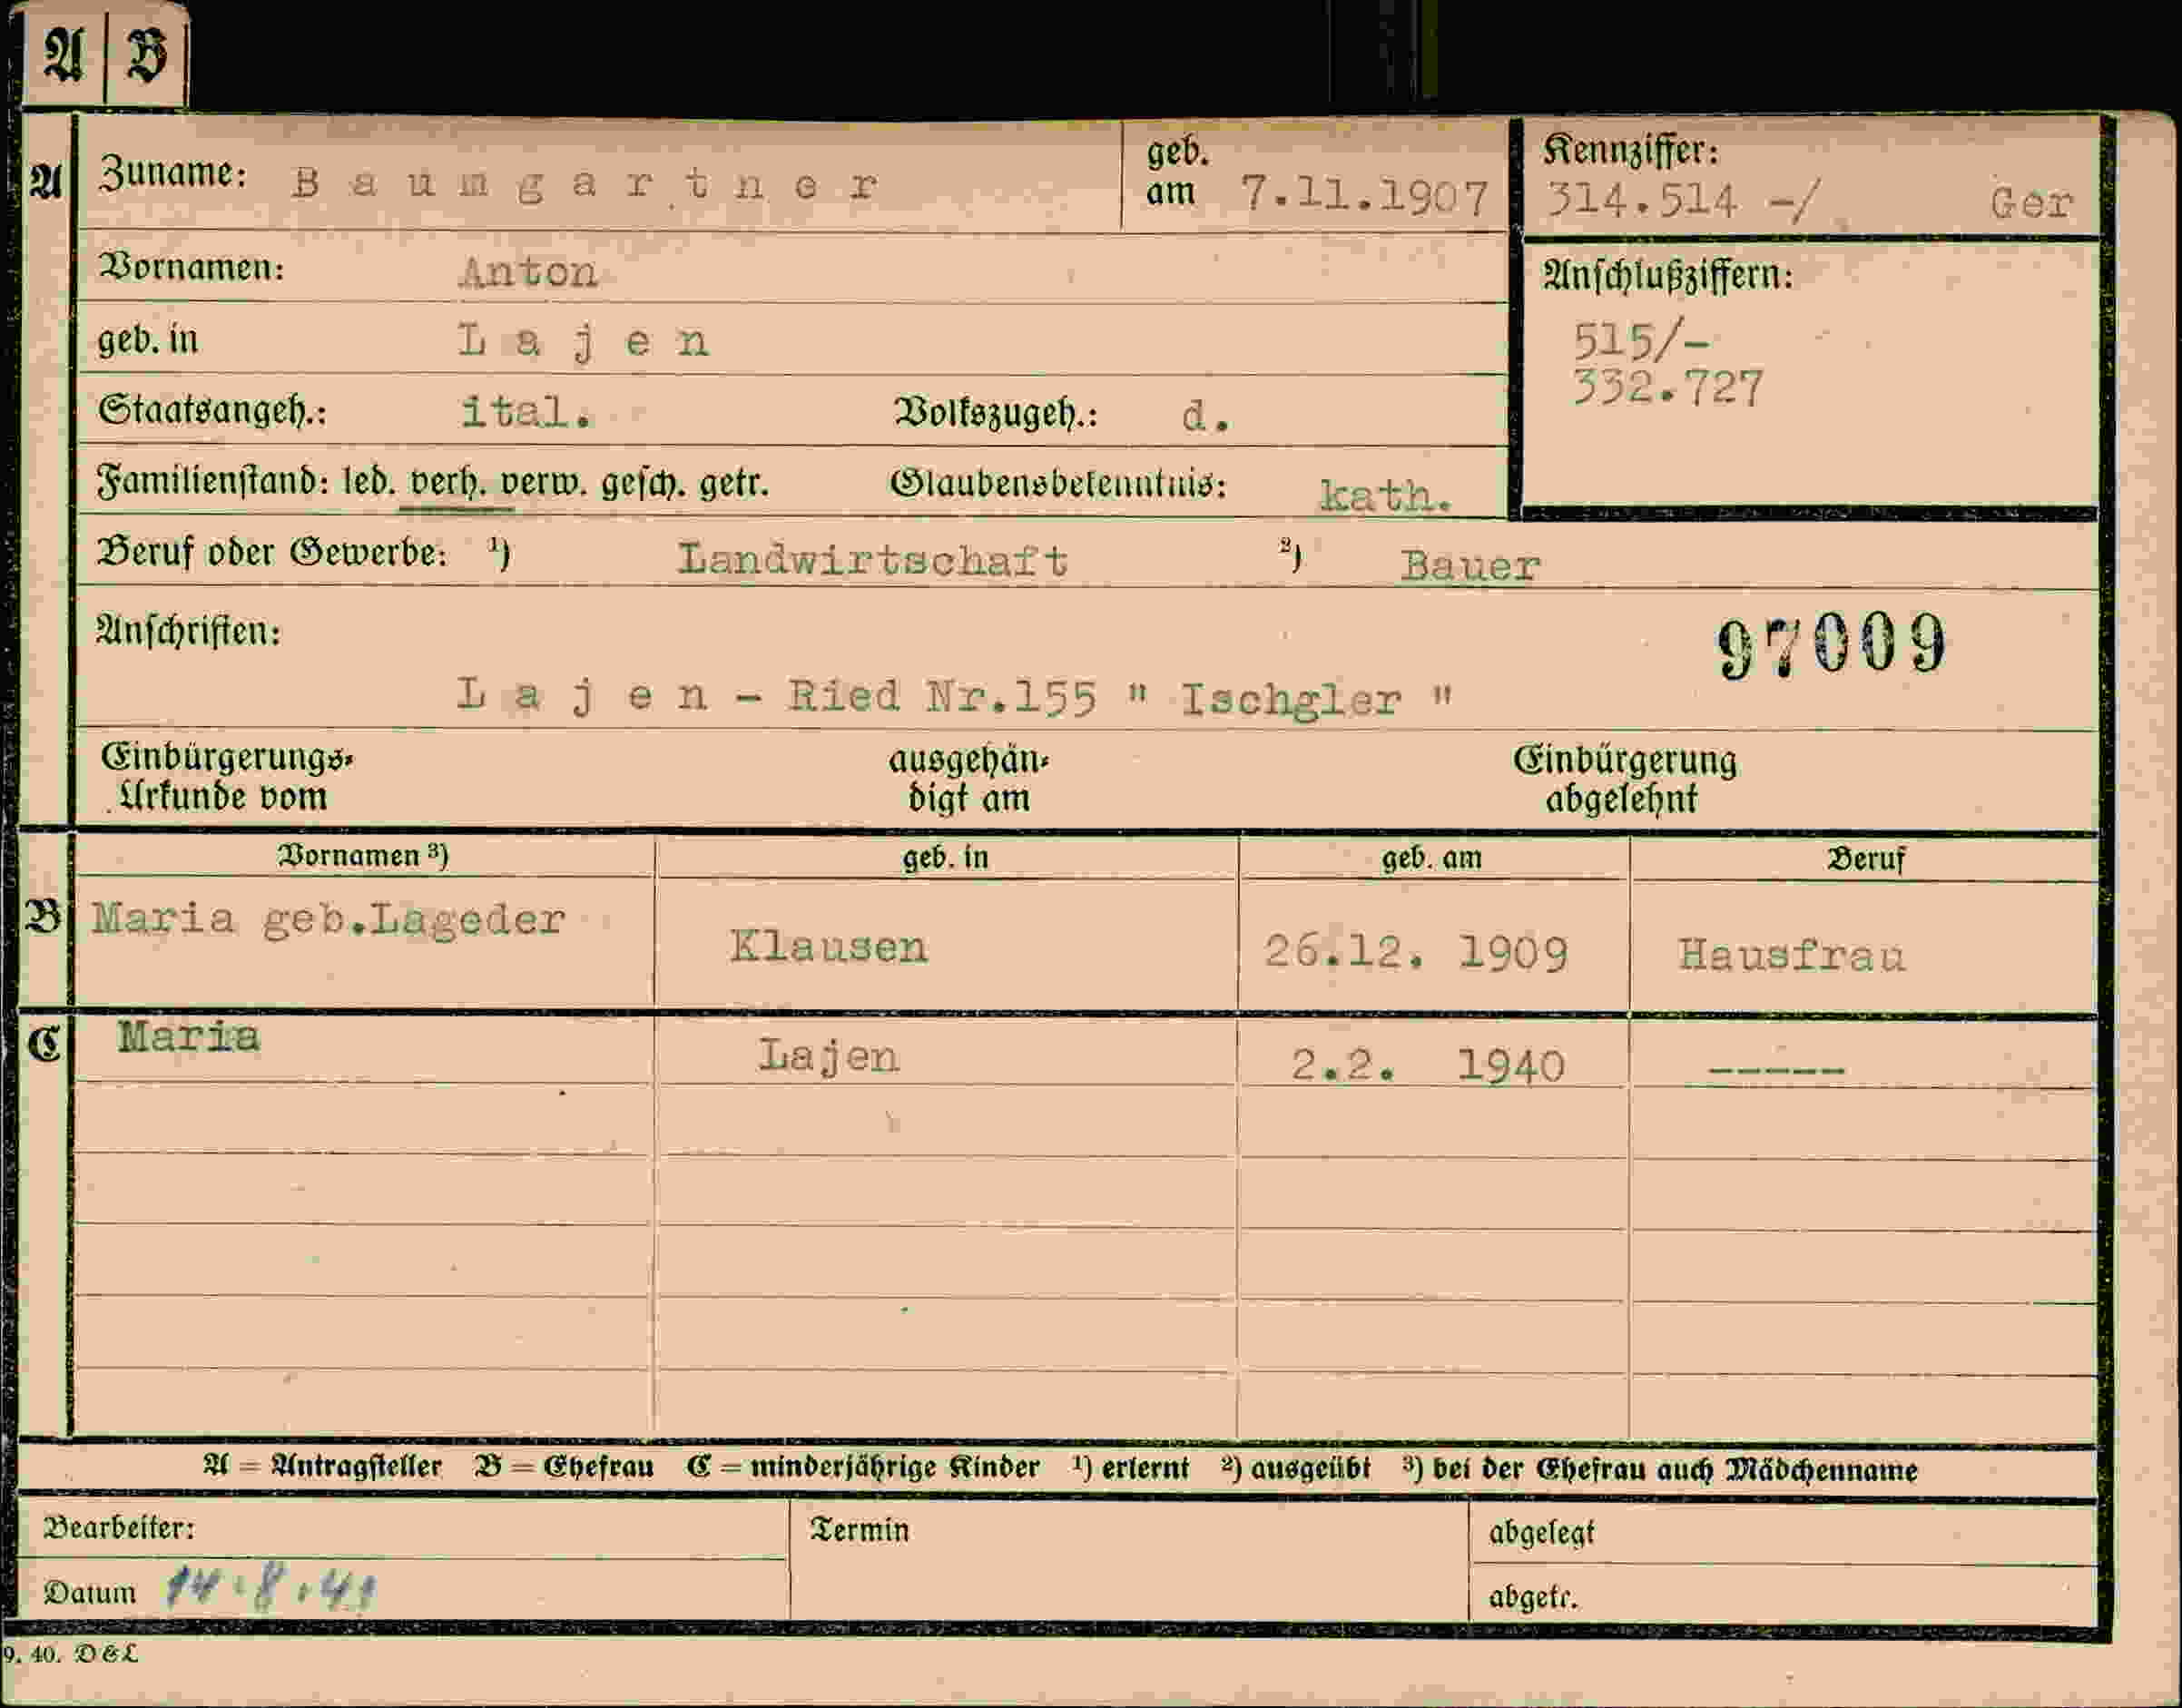 A B
A Zuname: Baumgartner geb. am 7.11.1907 Kennziffer: 314.514 -/ Ger
Vornamen: Anton Anschlußziffern:
geb. in Lajen 515/-
332.727
Staatsangeh.: ital. Volkszugeh.: d.
Familienstand: led. verh. verw. gesch. getr. Glaubensbekenntnis: kath.
Beruf oder Gewerbe: ¹) Landwirtschaft ²) Bauer
Anschriften: 97009
Lajen - Ried Nr.155 " Ischgler "
Einbürgerungs- ausgehän- Einbürgerung
Urkunde vom digt am abgelehnt
Vornamen ³) geb. in geb. am Beruf
B Maria geb.Lageder Klausen 26.12. 1909 Hausfrau
C Maria Lajen 2.2. 1940 -----
A = Antragsteller B = Ehefrau C = minderjährige Kinder ¹) erlernt ²) ausgeübt ³) bei der Ehefrau auch Mädchenname
Bearbeiter: Termin abgelegt
Datum 14.8.41 abgetr.
9. 40. D&L